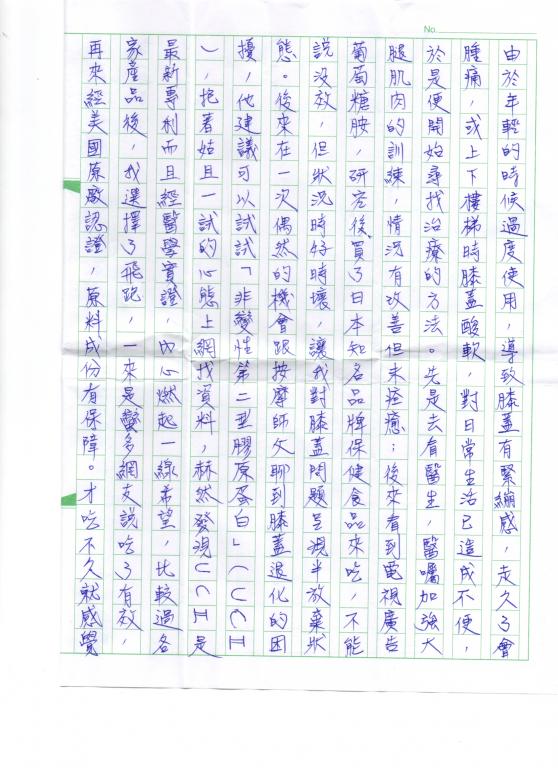 No.
由於年輕的時候過度使用，導致膝蓋有緊繃感，走久了會
腫痛，或上下樓梯時膝蓋酸軟，對日常生活已造成不便，
於是便開始尋找治療的方法。先是去看醫生，醫囑加強大
腿肌肉的訓練，情況有改善但未痊癒；後來看到電視廣告
葡萄糖胺，研究後買了日本知名品牌保健食品來吃，不能
說沒效，但狀況時好時壞，讓我對膝蓋問題呈現半放棄狀
態。後來在一次偶然的機會跟按摩師父聊到膝蓋退化的困
擾，他建議可以試試「非變性第二型膠原蛋白」（UCII
），抱著姑且一試的心態上網找資料，赫然發現UCII是
最新專利而且經醫學實證，內心燃起一線希望，比較過各
家產品後，我選擇了飛跑，一來是蠻多網友說吃了有效，
再來經美國原廠認證，原料成份有保障。才吃不久就感覺